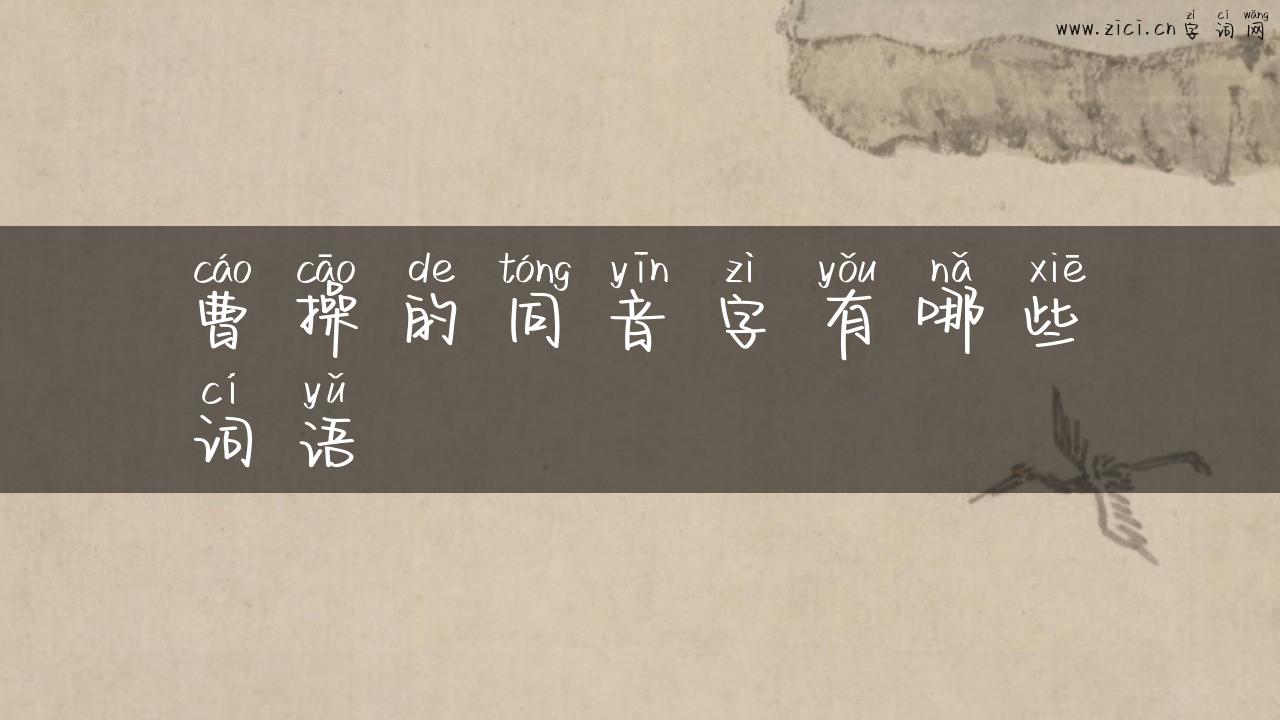 zì cí wǎng
www.zici.cn 字词网
cáo cāo de tóng yīn zì yǒu nǎ xiē
曹操的同音字有哪些
cí yǔ
词语